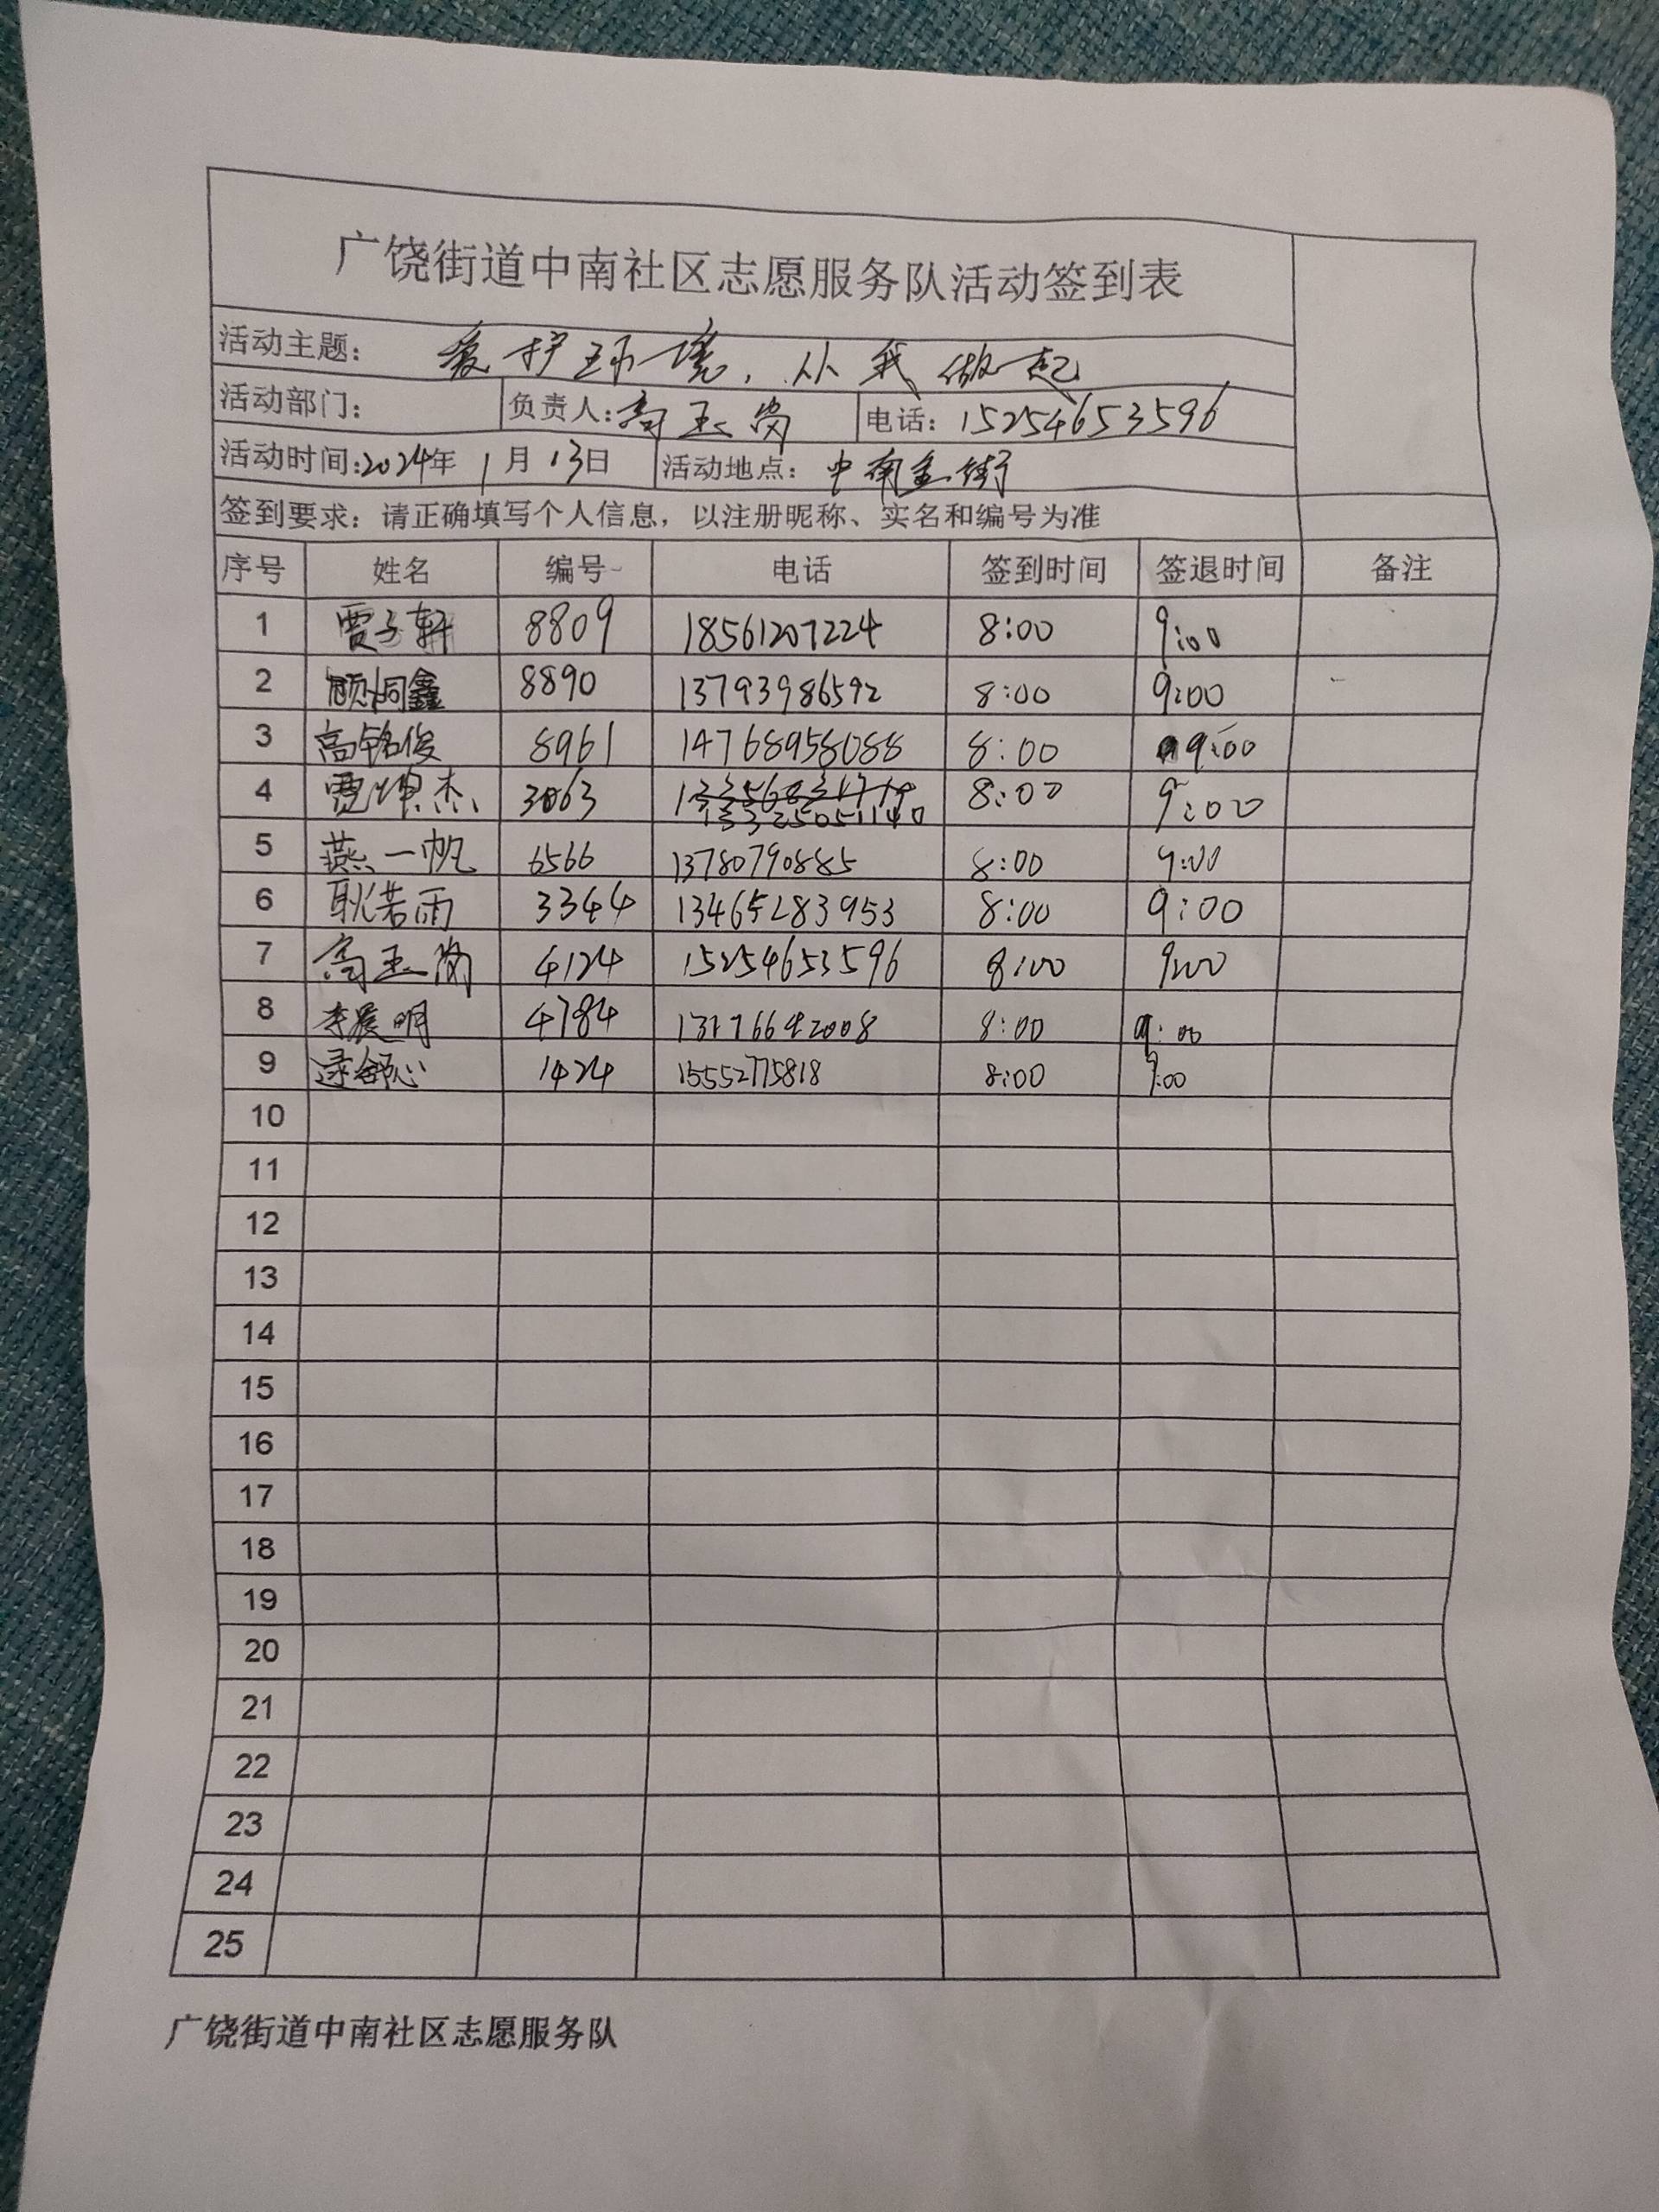 广饶街道中南社区志愿服务队活动签到表
活动主题: 爱护环境,从我做起
活动部门: 负责人:高玉岗 电话:15254653596
活动时间:2024年1月13日 活动地点:中南金街
签到要求:请正确填写个人信息,以注册昵称、实名和编号为准
序号 姓名 编号 电话 签到时间 签退时间 备注
1 贾子轩 8809 18561207224 8:00 9:00
2 8890 13793986592 8:00 9:00
3 高铭俊 8961 14768958088 8:00 9:00
4 3063 13325051140 8:00 9:00
5 燕一帆 6566 13780790885 8:00 9:00
6 耿若雨 3344 13465283953 8:00 9:00
7 高玉岗 4124 15254653596 8:00 9:00
8 李晨明 4784 8:00 9:00
9 逯舒心 1424 15552775818 8:00 9:00
10
11
12
13
14
15
16
17
18
19
20
21
22
23
24
25
广饶街道中南社区志愿服务队